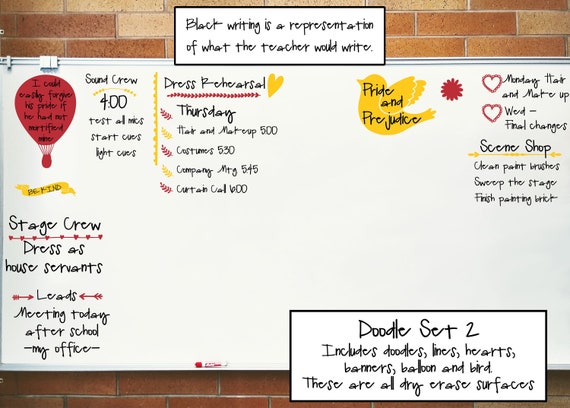 Black writing is a representation
of what the teacher would write.
I could
easily forgive
his pride if
he had not
mortified
mine
BE KIND
Sound Crew
4:00
test all mics
start cues
light cues
Dress Rehearsal
Thursday
Hair and Makeup 5:00
Costumes 5:30
Company Mtg 5:45
Curtain Call 6:00
Pride
and
Prejudice
Monday Hair
and Make up
Wed –
Final changes
Scene Shop
Clean paint brushes
Sweep the stage
Finish painting brick
Stage Crew
Dress as
house servants
Leads
Meeting today
after school
-my office-
Doodle Set 2
Includes doodles, lines, hearts,
banners, balloon and bird.
These are all dry erase surfaces